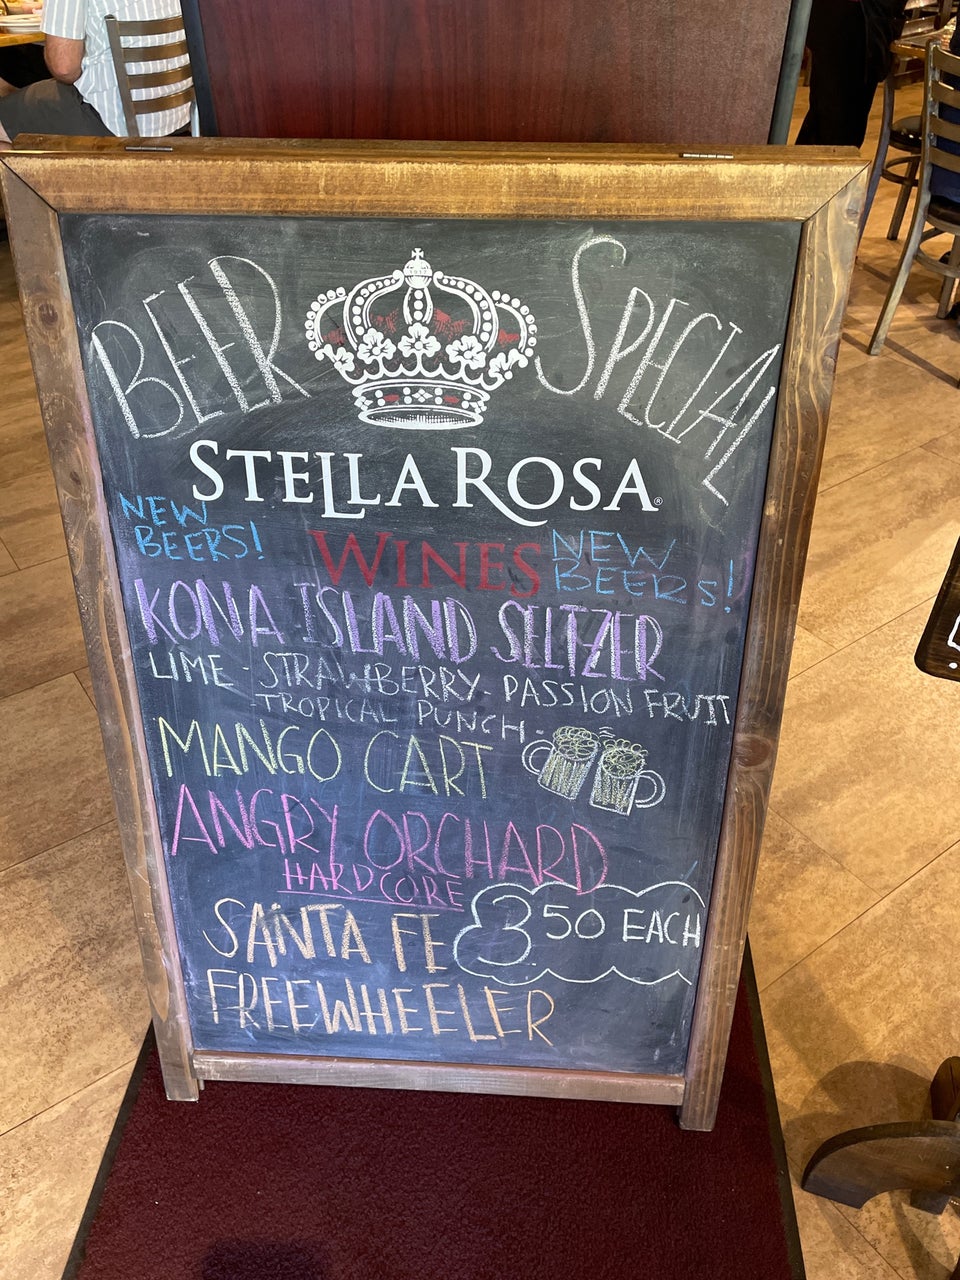 BEER SPECIAL
STELLA ROSA®
WINES
NEW
BEERS!
NEW
BEERS!
KONA ISLAND SELTZER
LIME - STRAWBERRY - PASSION FRUIT
- TROPICAL PUNCH -
MANGO CART
ANGRY ORCHARD
HARDCORE
3.50 EACH
SANTA FE
FREEWHEELER